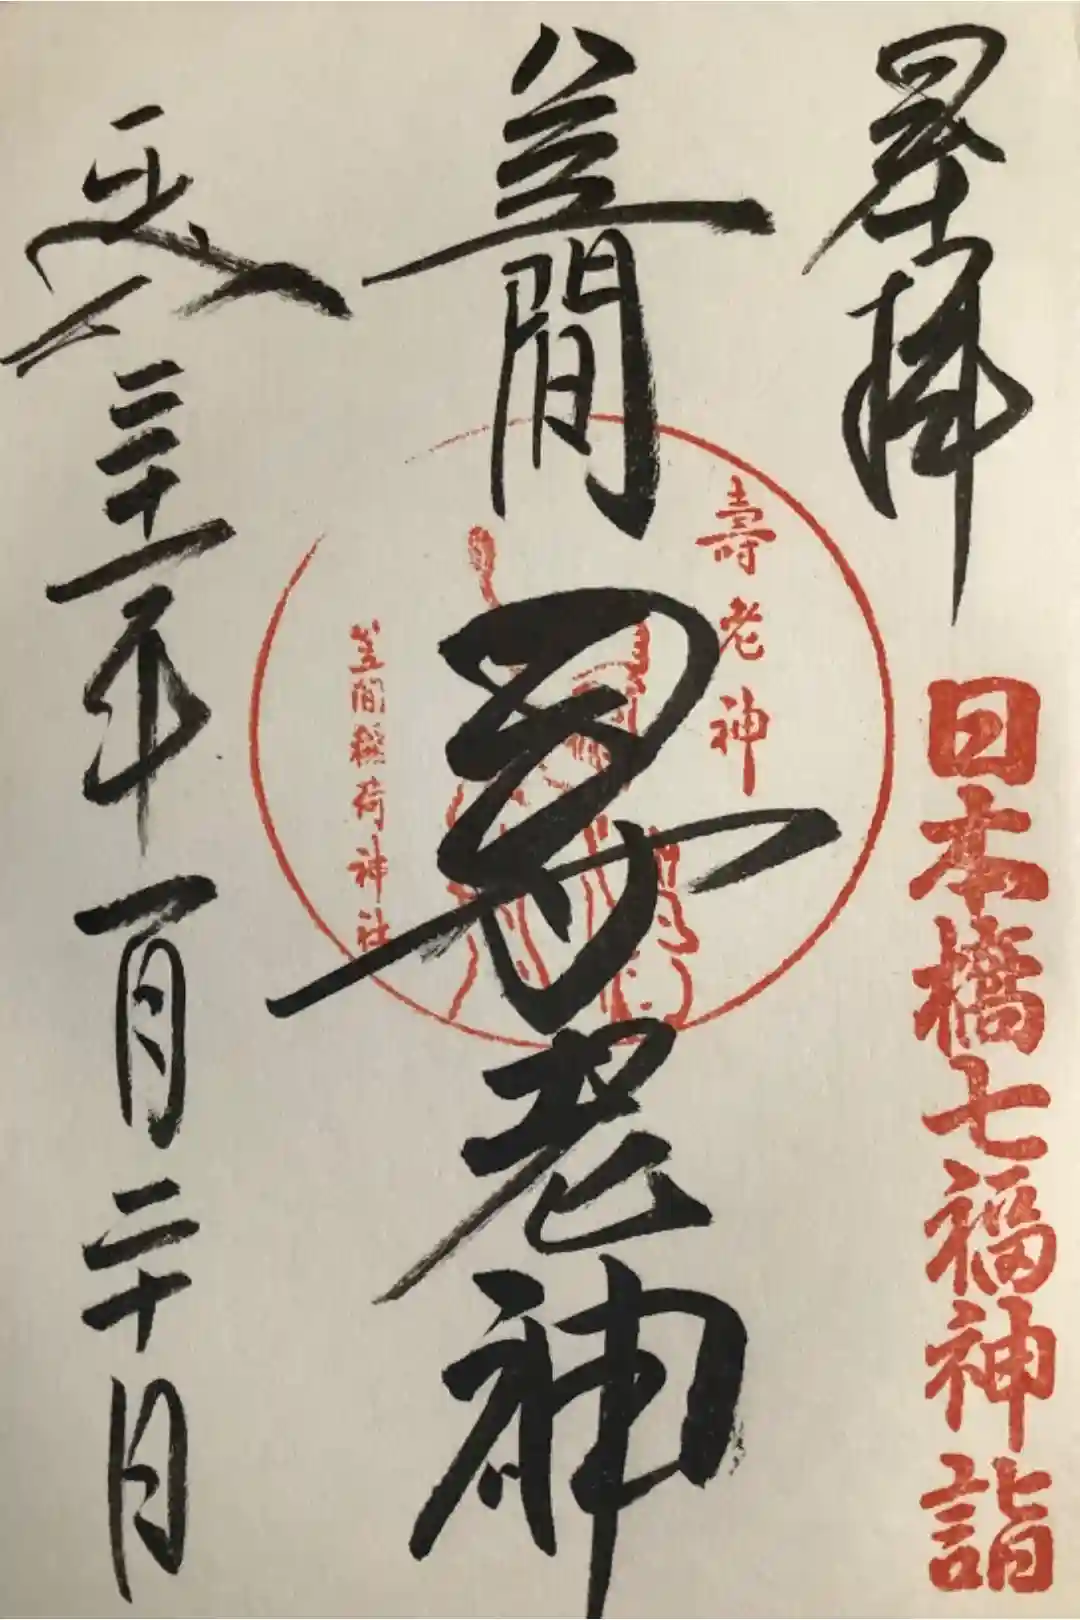 奉拝
日本橋七福神詣
笠間
寿老神
壽老神
笠間稲荷神社
平成三十一年一月二十日